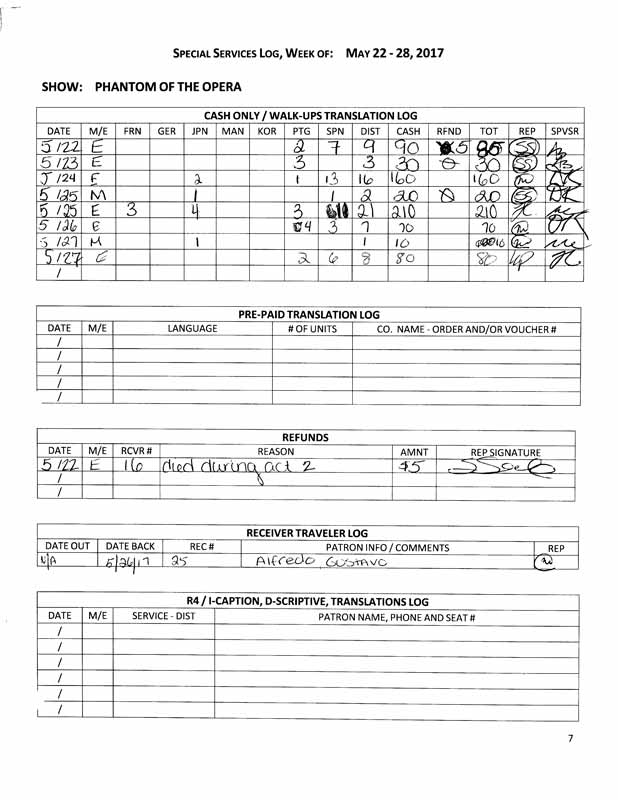 SPECIAL SERVICES LOG, WEEK OF: MAY 22 - 28, 2017
SHOW: PHANTOM OF THE OPERA
CASH ONLY / WALK-UPS TRANSLATION LOG
DATE M/E FRN GER JPN MAN KOR PTG SPN DIST CASH RFND TOT REP SPVSR
5/22 E 2 7 9 90 5 85 SS
5/23 E 3 3 30 0 30 SS
5/24 E 2 1 13 16 160 160
5/25 M 1 1 2 20 0 20 SS
5/25 E 3 4 3 21 210 210
5/26 E 4 3 7 70 70
5/27 M 1 1 10 10
5/27 E 2 6 8 80 80
/
PRE-PAID TRANSLATION LOG
DATE M/E LANGUAGE # OF UNITS CO. NAME - ORDER AND/OR VOUCHER #
/
/
/
/
/
REFUNDS
DATE M/E RCVR # REASON AMNT REP SIGNATURE
5/22 E 16 died during act 2 $5
/
/
RECEIVER TRAVELER LOG
DATE OUT DATE BACK REC # PATRON INFO / COMMENTS REP
N/A 5/26/17 25 Alfredo GUSTAVO
R4 / I-CAPTION, D-SCRIPTIVE, TRANSLATIONS LOG
DATE M/E SERVICE - DIST PATRON NAME, PHONE AND SEAT #
/
/
/
/
/
/
/
7